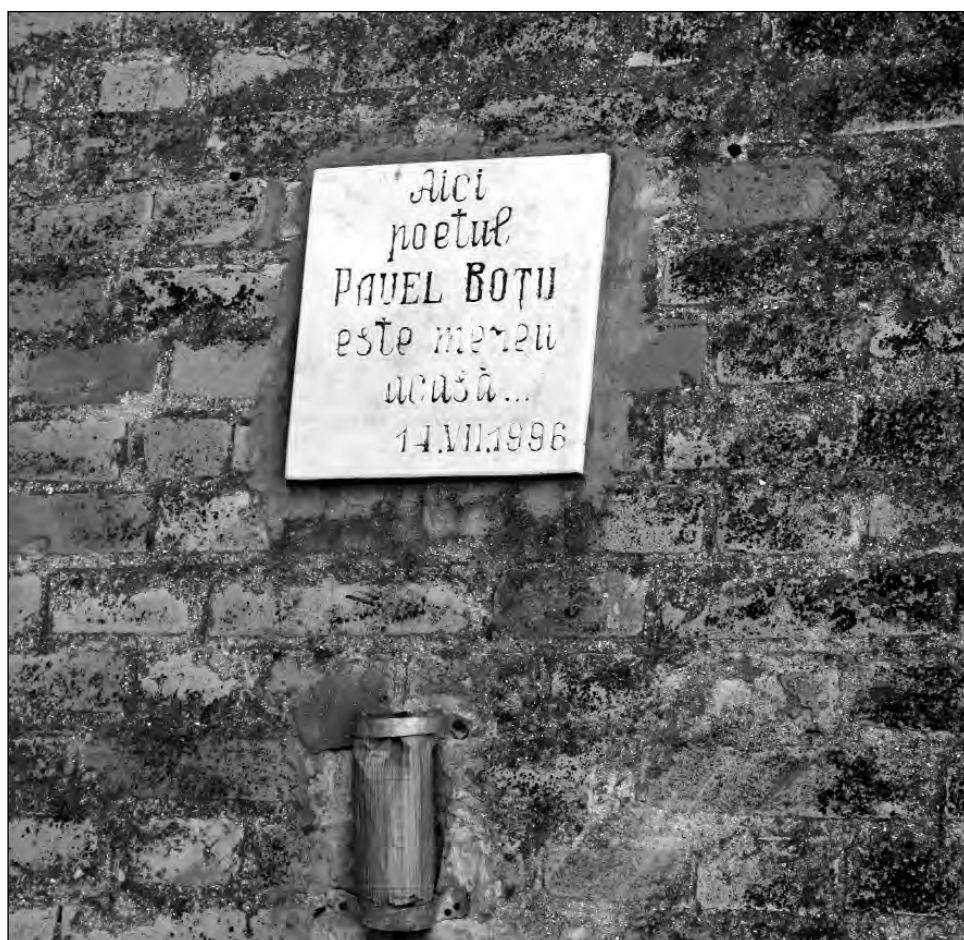 Aici
poetul
PAVEL BOȚU
este mereu
acasă...
14.VII.1996